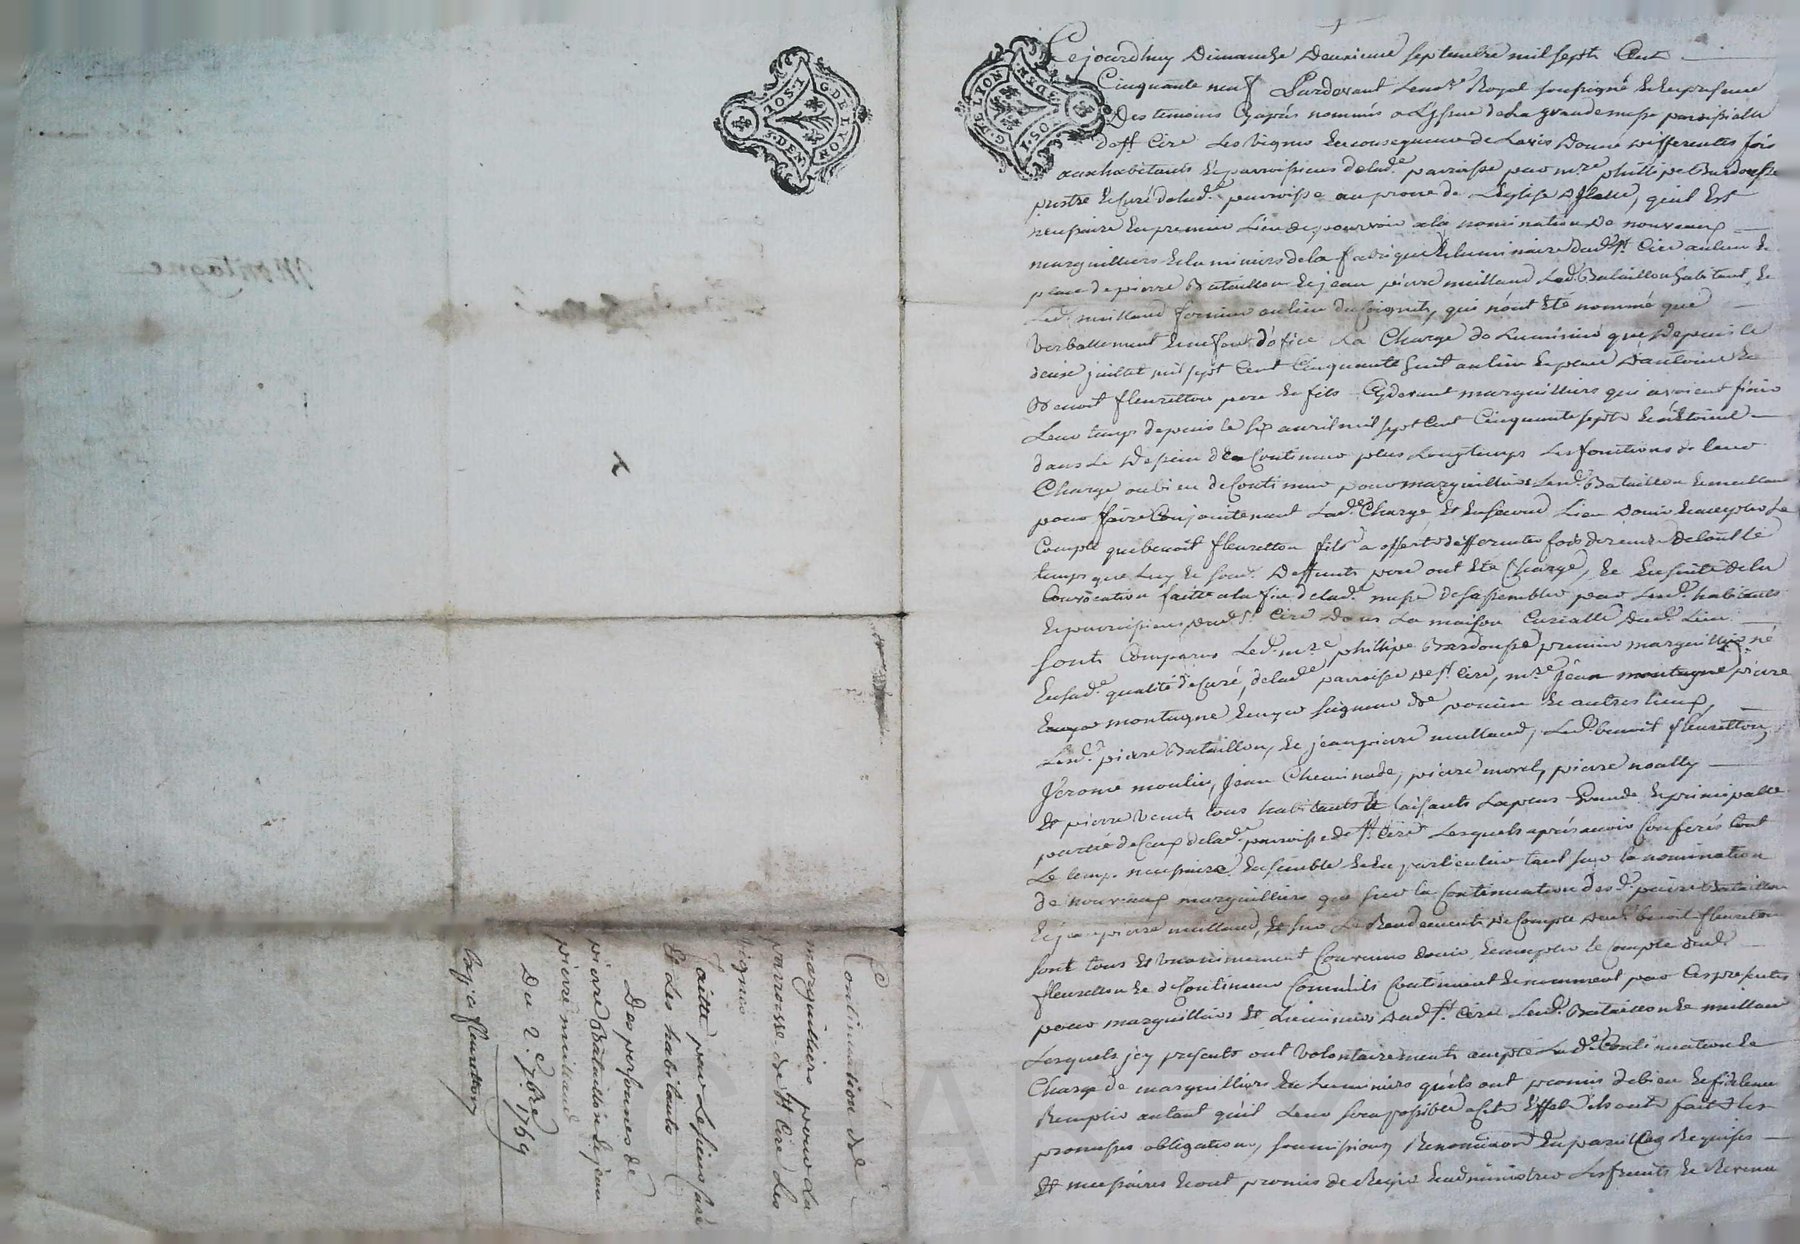 Cejourdhuy Dimanche Deuxieme Septembre mil sept Cent
Cinquante neuf Pardevant Le no.re Royal soussigné Et En presence
Des temoins Cyaprés nommés a L'issue de La grande messe paroissialle
de st Cire Les Vignes En consequence de Lavis Donné differentes fois
aux habitants Et parroissiens de lad.e parroisse par m.re philippe Bardousse
prestre Et curé de lad.e parroisse au prone de L'Eglise quil Est
necessaire En premier Lieu de pourvoir a la nomination De nouveaux
marguilliers Et luminiers de la fabrique Et luminaire dud. st Cire au lieu Et
place de pierre Bataillon Et jean pierre meillaud Led. Bataillon habitant Et
Led. meillaud fermier au lieu qui n'ont Eté nommé que
Verballement Et ne font d'office La Charge de Luminier que depuis Le
juillet mil sept Cent Cinquante huit au lieu Et place D'antoine Et
Benoit fleuretton pere Et fils Cydevant marguilliers qui avoient finis
Leur temps depuis le six avril mil sept Cent Cinquante sept Et n'étoient
dans Le dessein de Continuer plus Longtemps Les fonctions de leur
Charge ou bien de Continuer pour marguilliers Lesd. Bataillon Et meillaud
pour faire Conjointement lad.e Charge Et En second Lieu Douir Et accepter Le
Compte que benoit fleuretton fils a offert differentes fois de rendre de tout le
temps que Luy Et feu Deffunt pere ont Eté Chargé, Et En suitte de la
Convocation faitte a la fin de lad.e messe de s'assembler par Lesd. habitants
Et parroissiens dud. st Cire Dans La maison Curialle dud. Lieu
sont Comparus Led. m.re philippe Bardousse premier marguillier né
En sad.e qualité de Curé de lad.e parroisse de st Cire, m.re jean montagne
montagne Ecuyer seigneur de poncin Et autres lieux,
Lesd. pierre Bataillon, Et jean pierre meillaud, Led. benoit fleuretton,
Jerome moulin, Jean Cheminade, pierre morel, pierre noally
Et pierre tous habitants Et faisants La plus Grande Et principalle
partie de Ceux de lad.e parroisse de st Cire Lesquels aprés avoir Conferés tout
Le temps necessaire Ensemble Et En particulier tant sur la nomination
de nouveaux marguilliers que sur la Continuation desd. pierre Bataillon
Et jean pierre meillaud, Et sur Le Rendement de Compte dud. benoit fleuretton
sont tous Et unanimement Convenus douir Et accepter le compte dud.
fleuretton Et de Continuer Comme ils Continuent Et nomment par Ces presentes
pour marguilliers Et Luminiers dud. st Cire Lesd. Bataillon Et meillaud
Lesquels jcy presents ont volontairement accepté Lad.e Continuation Et
Charge de marguilliers Et Luminiers qu'ils ont promis de bien Et fidelement
Remplir autant quil Leur sera possible a cet Effet ils ont fait Les
promesses obligations, soumissions, Renonciations En pareil Cas Requises
Et necessaires Et ont promis de Regir Et administrer Les fruits Et Revenus
G. DE LYON
I. SOL
8. DEN.
G. DE LYON
I. SOL
8. DEN.
Montagne
Continuation de
marguilliers pour La
parroisse de st Cire Les
Vignes
faitte par Le sieur Curé
Et Les habitants
Des personnes de
pierre Bataillon Et jean
pierre meillaud
Du 2.e 7bre 1759
fleuretton